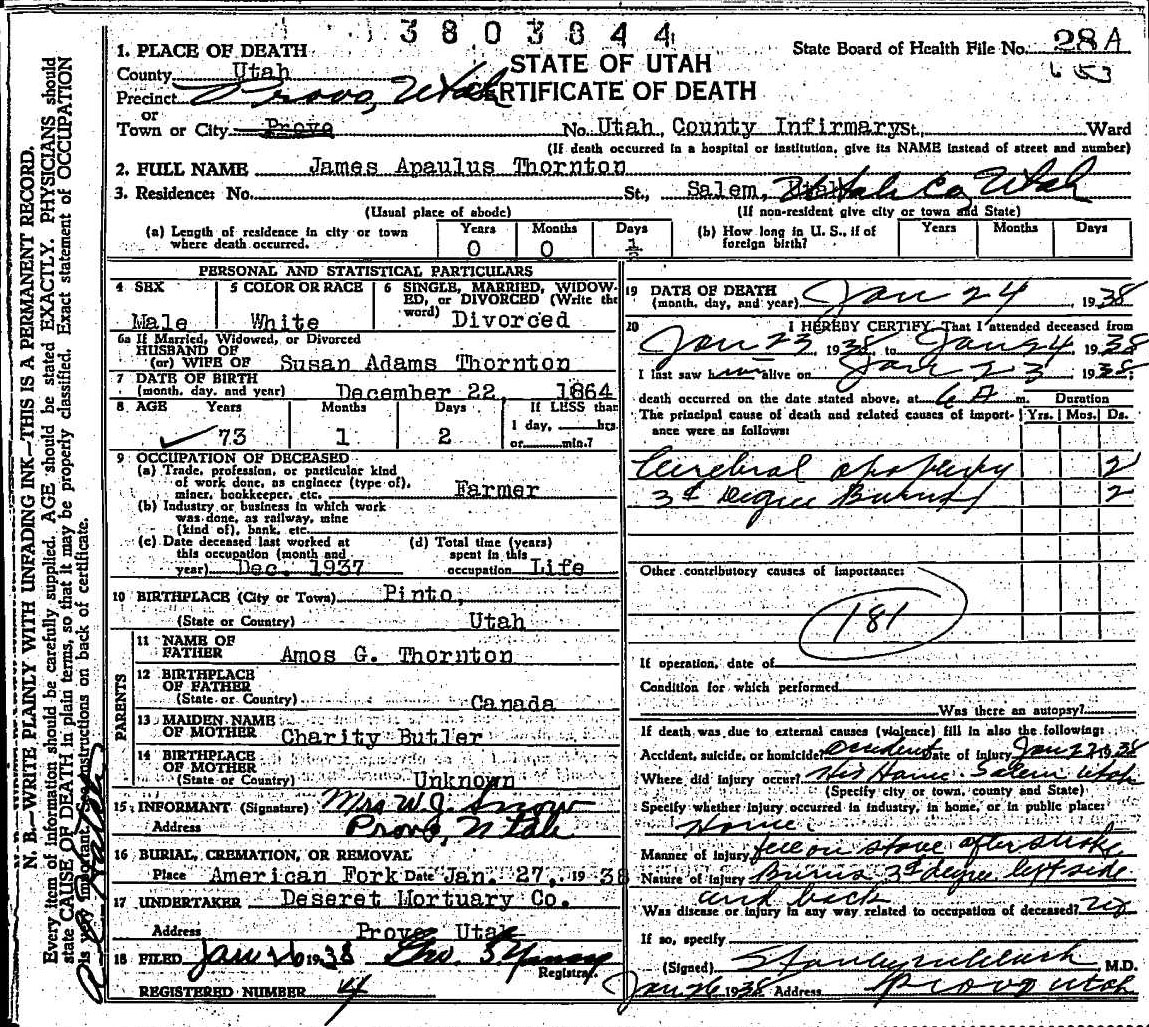 3803844
1. PLACE OF DEATH
State Board of Health File No. 28A
County Utah
STATE OF UTAH
Precinct Provo, Utah
CERTIFICATE OF DEATH
or
Town or City Provo No. Utah County Infirmary St., Ward
(If death occurred in a hospital or institution, give its NAME instead of street and number)
2. FULL NAME James Apaulus Thornton
3. Residence: No. St., Salem, Utah Utah Co, Utah
(Usual place of abode) (If non-resident give city or town and State)
(a) Length of residence in city or town where death occurred.
Years 0 Months 0 Days
(b) How long in U. S., if of foreign birth? Years Months Days
PERSONAL AND STATISTICAL PARTICULARS
4 SEX Male
5 COLOR OR RACE White
6 SINGLE, MARRIED, WIDOWED, or DIVORCED (Write the word) Divorced
6a If Married, Widowed, or Divorced
HUSBAND OF
(or) WIFE OF Susan Adams Thornton
7 DATE OF BIRTH
(month, day, and year) December 22, 1864
8 AGE Years Months Days If LESS than
73 1 2 1 day, hrs.
or min.?
9 OCCUPATION OF DECEASED
(a) Trade, profession, or particular kind
of work done, as engineer (type of),
miner, bookkeeper, etc. Farmer
(b) Industry or business in which work
was done, as railway, mine
(kind of), bank, etc.
(c) Date deceased last worked at
this occupation (month and
year) Dec. 1937
(d) Total time (years)
spent in this
occupation Life
10 BIRTHPLACE (City or Town) Pinto,
(State or Country) Utah
PARENTS
11 NAME OF
FATHER Amos G. Thornton
12 BIRTHPLACE
OF FATHER
(State or Country) Canada
13 MAIDEN NAME
OF MOTHER Charity Butler
14 BIRTHPLACE
OF MOTHER
(State or Country) Unknown
15 INFORMANT (Signature) Mrs W. J. Snow
Address Provo, Utah
16 BURIAL, CREMATION, OR REMOVAL
Place American Fork Date Jan. 27, 1938
17 UNDERTAKER Deseret Mortuary Co.
Address Provo Utah
18 FILED Jan 26 1938
Registrar.
REGISTERED NUMBER 4
19 DATE OF DEATH
(month, day, and year) Jan 24 1938
20 I HEREBY CERTIFY, That I attended deceased from
Jan 23 1938, to Jan 24, 1938
I last saw him alive on Jan 23 1938;
death occurred on the date stated above, at 6 A m. Duration
The principal cause of death and related causes of importance were as follows: Yrs. Mos. Ds.
Cerebral apoplexy 2
3d Degree Burns 2
Other contributory causes of importance:
181
If operation, date of
Condition for which performed
Was there an autopsy?
If death was due to external causes (violence) fill in also the following:
Accident, suicide, or homicide? Accident Date of injury Jan 22 1938
Where did injury occur? His Home - Salem Utah
(Specify city or town, county and State)
Specify whether injury occurred in industry, in home, or in public place:
Home.
Manner of injury fell on stove after stroke
Nature of injury Burns 3d degree left side
and back
Was disease or injury in any way related to occupation of deceased? no
If so, specify
(Signed) M.D.
Jan 26 1938 Address Provo Utah
N. B.—WRITE PLAINLY WITH UNFADING INK—THIS IS A PERMANENT RECORD.
Every item of information should be carefully supplied. AGE should be stated EXACTLY. PHYSICIANS should
state CAUSE OF DEATH in plain terms, so that it may be properly classified. Exact statement of OCCUPATION
is very important. See instructions on back of certificate.